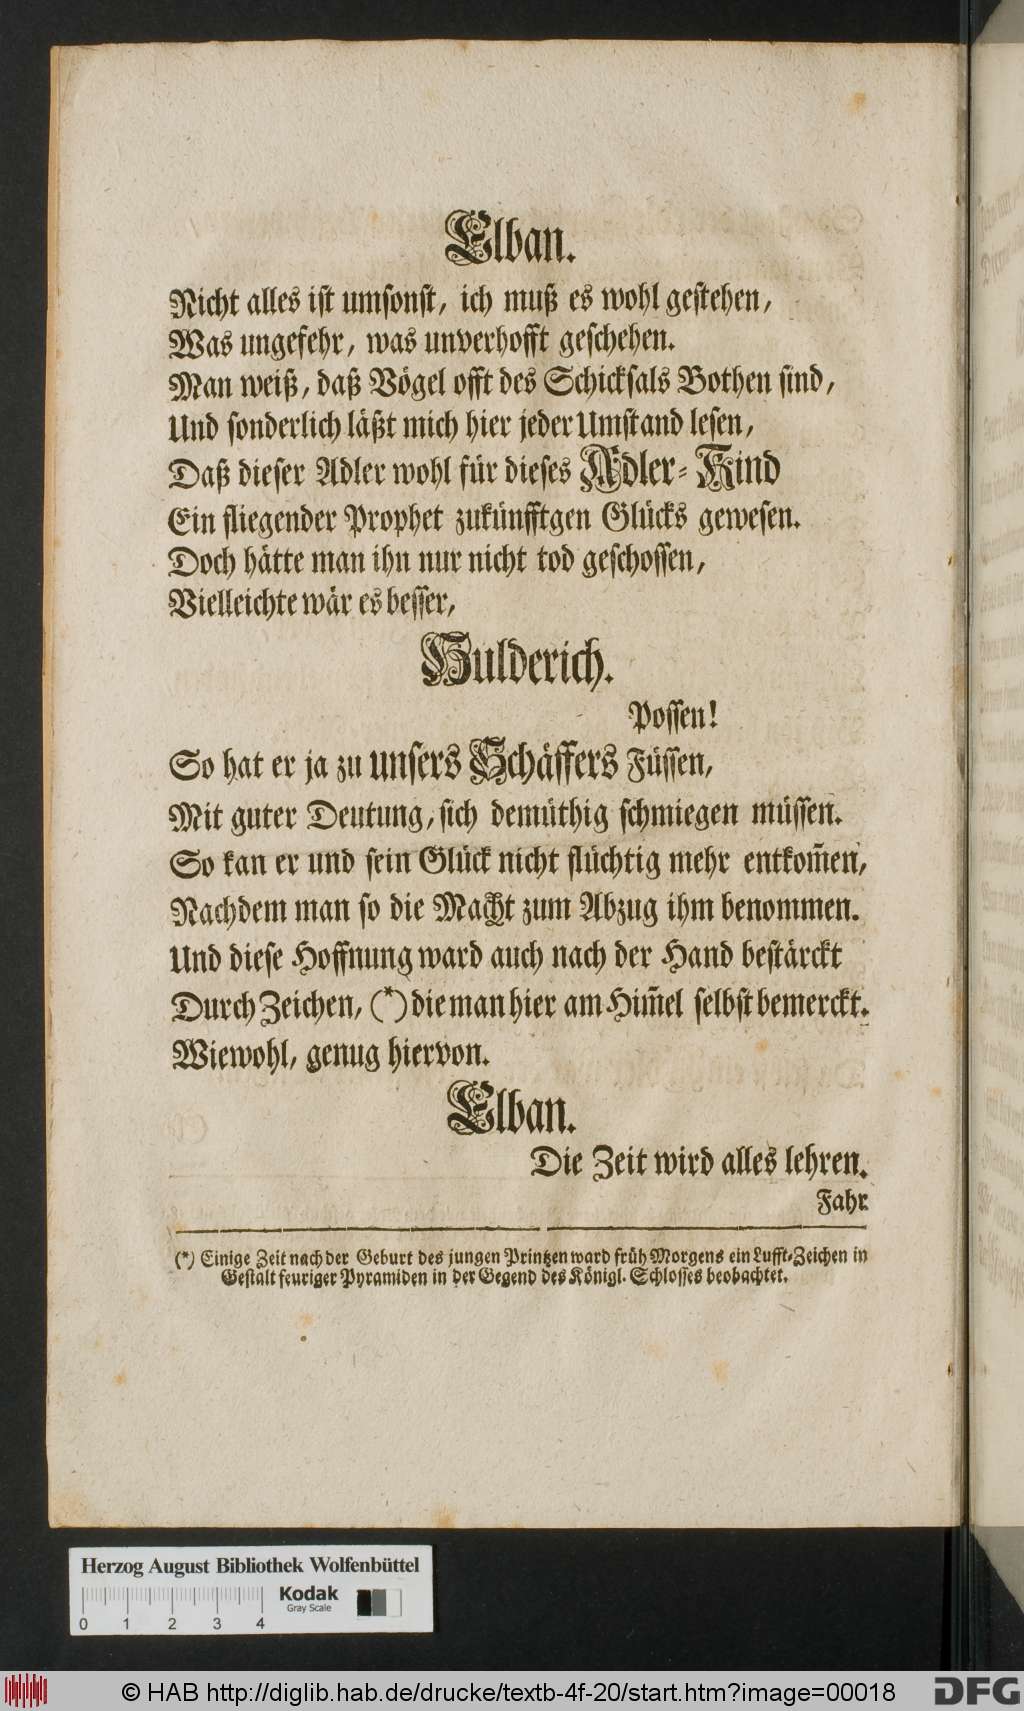 Elban.
Nicht alles ist umsonst, ich muß es wohl gestehen,
Was ungefehr, was unverhofft geschehen.
Man weiß, daß Vögel offt des Schicksals Bothen sind,
Und sonderlich läßt mich hier jeder Umstand lesen,
Daß dieser Adler wohl für dieses Adler-Kind
Ein fliegender Prophet zukünfftgen Glücks gewesen.
Doch hätte man ihn nur nicht tod geschossen,
Vielleichte wär es besser,
Hulderich.
Possen!
So hat er ja zu unsers Schäffers Füssen,
Mit guter Deutung, sich demüthig schmiegen müssen.
So kan er und sein Glück nicht flüchtig mehr entkom̄en,
Nachdem man so die Macht zum Abzug ihm benommen.
Und diese Hoffnung ward auch nach der Hand bestärckt
Durch Zeichen, (*) die man hier am Him̄el selbst bemerckt.
Wiewohl, genug hiervon.
Elban.
Die Zeit wird alles lehren.
Fahr.
(*) Einige Zeit nach der Geburt des jungen Printzen ward früh Morgens ein Lufft-Zeichen in
Gestalt feuriger Pyramiden in der Gegend des Königl. Schlosses beobachtet.
Herzog August Bibliothek Wolfenbüttel
Kodak
Gray Scale
0 1 2 3 4
© HAB http://diglib.hab.de/drucke/textb-4f-20/start.htm?image=00018
DFG